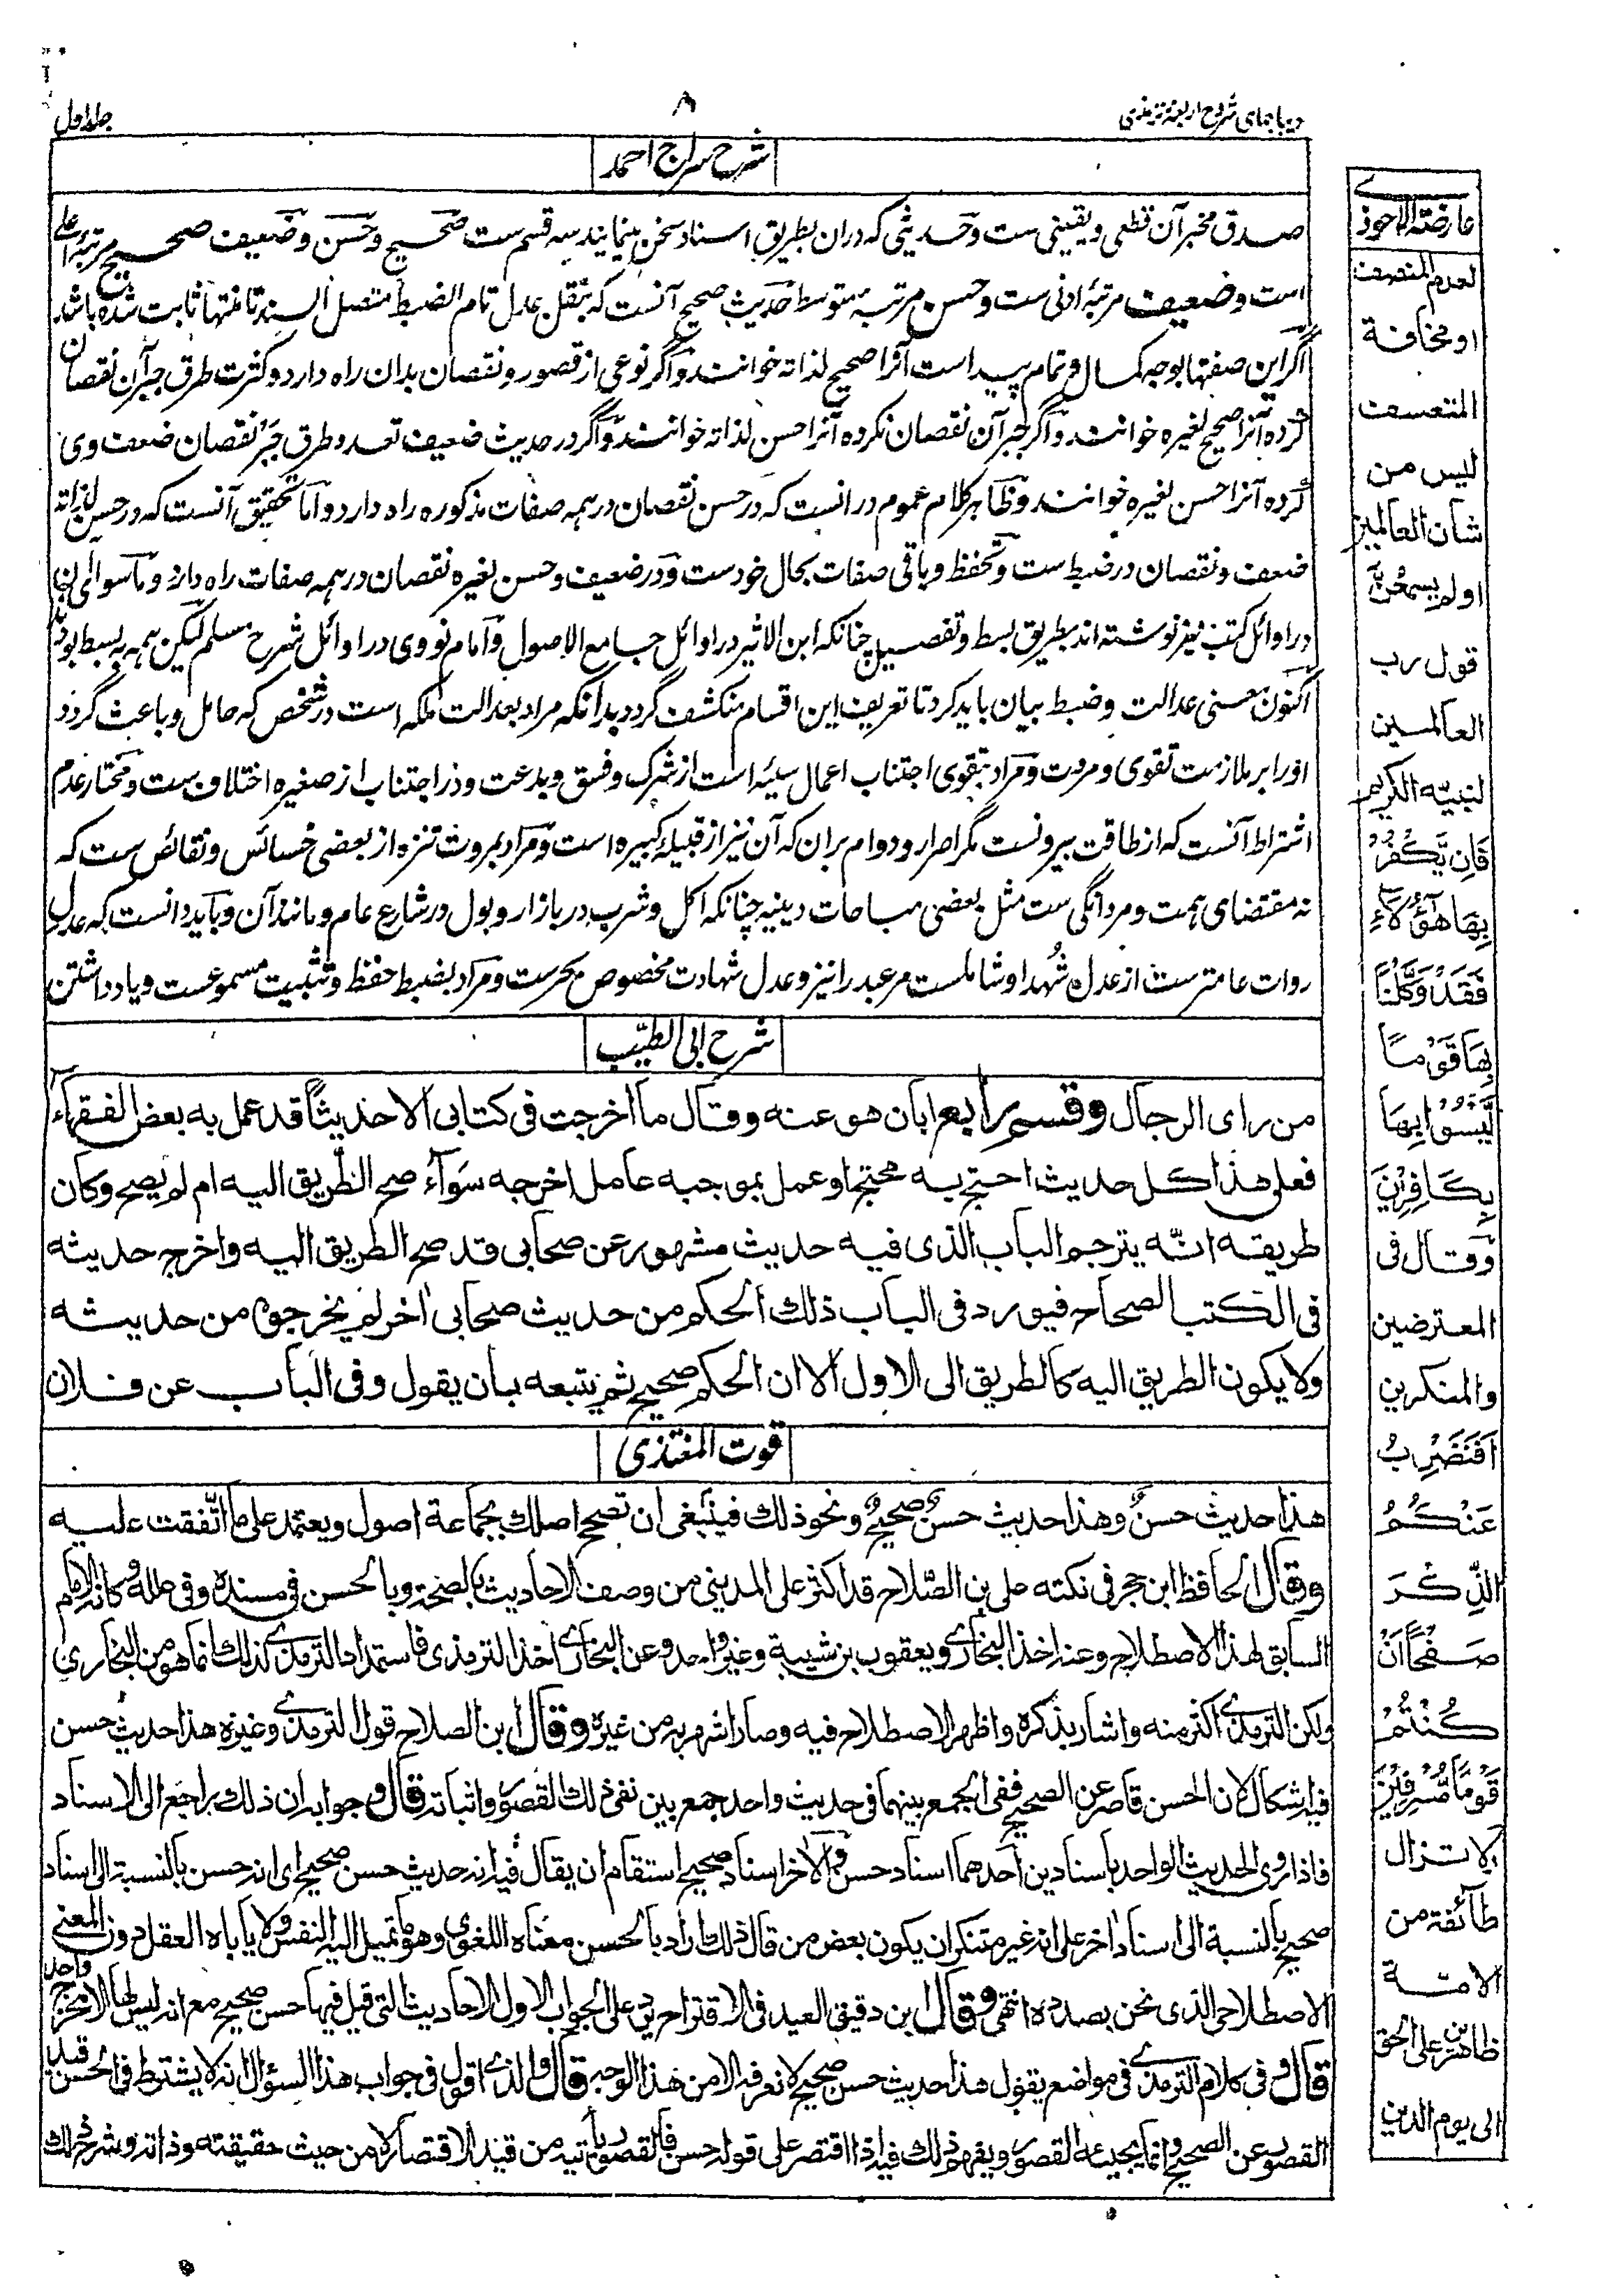 دیباچهای شروح اربعهٔ ترمذی
۸
جلد اول
شرح سراج احمد
صدق مخبر آن قطعی و یقینی ست و حدیثی که دران بطریق اسناد سخن مینمایند سه قسم ست صحیح و حسن و ضعیف صحیح مرتبهٔ اعلی
است و ضعیف مرتبهٔ ادنی ست و حسن مرتبه متوسط حدیث صحیح آنست که بنقل عدل تام الضبط متصل السند تا منتها ثابت شده باشد
اگر این صفتها بوجه کمال و تمام پیداست آنرا صحیح لذاته خوانند و اگر نوعی از قصور و نقصان بدان راه دارد و کثرت طرق جبر آن نقصان
کرده آنرا صحیح لغیره خوانند و اگر جبر آن نقصان نکرده آنرا حسن لذاته خوانند و اگر در حدیث ضعیف تعدد طرق جبر نقصان ضعف وی
کرده آنرا حسن لغیره خوانند و ظاهر کلام عموم درانست که در حسن نقصان در همه صفات مذکوره راه دارد و اما تحقیق آنست که در حسن لذاته
ضعف و نقصان در ضبط ست و تحفظ و باقی صفات بحال خودست و در ضعیف و حسن لغیره نقصان در همه صفات راه دارد و ماسوای اینها
در اوائل کتب نیز نوشته اند بطریق بسط و تفصیل چنانکه ابن الاثیر در اوائل جامع الاصول و امام نووی در اوائل شرح مسلم لیکن همه به بسط بود
اکنون معنی عدالت و ضبط بیان باید کرد تا تعریف این اقسام منکشف گردد بدانکه مراد بعدالت ملکه است در شخص که حامل و باعث گردد
اورا بر ملازمت تقوی و مروت و مراد بتقوی اجتناب اعمال سیئه است از شرک و فسق و بدعت و در اجتناب از صغیره اختلاف ست و مختار عدم
اشتراط آنست که از طاقت بیرونست مگر اصرار و دوام بران که آن نیز از قبیلهٔ کبیره است و مراد بمروت تنزه از بعضی خسائس و نقائص ست که
نه مقتضای همت و مردانگی ست مثل بعضی مباحات دینیه چنانکه اکل و شرب در بازار و بول در شارع عام و مانند آن و باید دانست که عدل
روات عام ترست از عدل شهدا و شاملست مر عبد را نیز و عدل شهادت مخصوص بحرست و مراد بضبط حفظ و تثبیت مسموعست و یاد داشتن
شرح ابی الطیّب
من رای الرجال وقسم رابع ابان هو عنه وقال ما اخرجت فی کتابی الا حدیثاً قد عمل به بعض الفقهاء
فعلی هذا کل حدیث احتج به محتج او عمل بموجبه عامل اخرجه سوآء صح الطریق الیه ام لم یصح وکان
طریقه انّه یترجم الباب الذی فیه حدیث مشهور عن صحابی قد صح الطریق الیه واخرج حدیثه
فی الکتب الصحاح فیورد فی الباب ذلك الحکم من حدیث صحابی اٰخر لم یخرجوه من حدیثه
ولا یکون الطریق الیه کالطریق الی الاول الا ان الحکم صحیح ثم یتبعه بان یقول وفی الباب عن فلان
قوت المغتذی
هذا حدیث حسنٌ وهذا حدیث حسنٌ صحیحٌ ونحو ذلك فینبغی ان تصحح اصلك بجماعة اصول ویعتمد علی ما اتّفقت علیه
وقال الحافظ ابن حجر فی نکته علی بن الصّلاح قد اکثر علی المدینی من وصف الاحادیث بالصحة وبالحسن فی مسنده وفی علله وکانه الامام
السابق لهذا الاصطلاح وعنه اخذ البخاری ویعقوب بن شیبة وغیر واحد وعن البخاری اخذ الترمذی فاستمداد الترمذی لذلك انما هو من البخاری
ولکن الترمذی اکثر منه واشار بذکره واظهر الاصطلاح فیه وصار اشهر به من غیره وقال ابن الصلاح قول الترمذی وغیره هذا حدیث حسن
فیه اشکال لان الحسن قاصر عن الصحیح ففی الجمع بینهما فی حدیث واحد جمع بین نفی ذلك القصور واثباته قال وجوابه ان ذلك راجع الی الاسناد
فاذا روی الحدیث الواحد باسنادین احدهما اسناد حسن والاٰخر اسناد صحیح استقام ان یقال فیه انه حدیث حسن صحیح ای انه حسن بالنسبة الی اسناد
صحیح بالنسبة الی اسناد اٰخر علی انه غیر مستنکر ان یکون بعض من قال ذلك اراد بالحسن معناه اللغوی وهو ما تمیل الیه النفس ولا یاباه العقل دون المعنی
الاصطلاحی الذی نحن بصدده انتهی وقال ابن دقیق العید فی الاقتراح یرد علی الجواب الاول الاحادیث التی قیل فیها حسن صحیح مع انه لیس لها الا مخرج واحد
قال وفی کلام الترمذی فی مواضع یقول هذا حدیث حسن صحیح لا نعرفه الا من هذا الوجه قال والذی اقول فی جواب هذا السؤال انه لا یشترط فی الحسن قید
القصور عن الصحیح وانما یجیئه القصور ویفهم ذلك فیه اذا اقتصر علی قوله حسن فالقصور یاتیه من قید الاقتصار لا من حیث حقیقته وذاته وشرح ذلك
عارضة الاحوذی
لعدم المنصف
او مخافة
المتعسف
لیس من
شان العالمین
اولم یسمعنّ
قول رب
العالمین
لنبیّه الکریم
فَاِن یَّکْفُرْ
بِهَا هٰۤؤُلَآءِ
فَقَدْ وَکَّلْنَا
بِهَا قَوْمًا
لَّیْسُوْا بِهَا
بِکَافِرِیْنَ
وقال فی
المعترضین
والمنکرین
اَفَنَضْرِبُ
عَنْکُمُ
الذِّکْرَ
صَفْحًا اَنْ
کُنْتُمْ
قَوْمًا مُّسْرِفِیْنَ
لا تزال
طائفة من
الامّة
ظاهرین علی الحق
الی یوم الدین